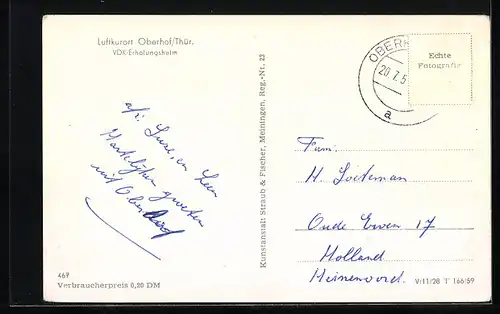 Luftkurort Oberhof/Thür.
VDK-Erholungsheim
OBERH
20.7.5
a
Echte
Fotografie
a/z. Sure, en Leen
Hartelijken groeten
uit Oberhof
Kunstanstalt Straub & Fischer, Meiningen, Reg.-Nr. 23
Fam.
H. Soeteman
Oude Erven 17
Holland
Heinenoord.
469
Verbraucherpreis 0,20 DM
V/11/28 T 166/59